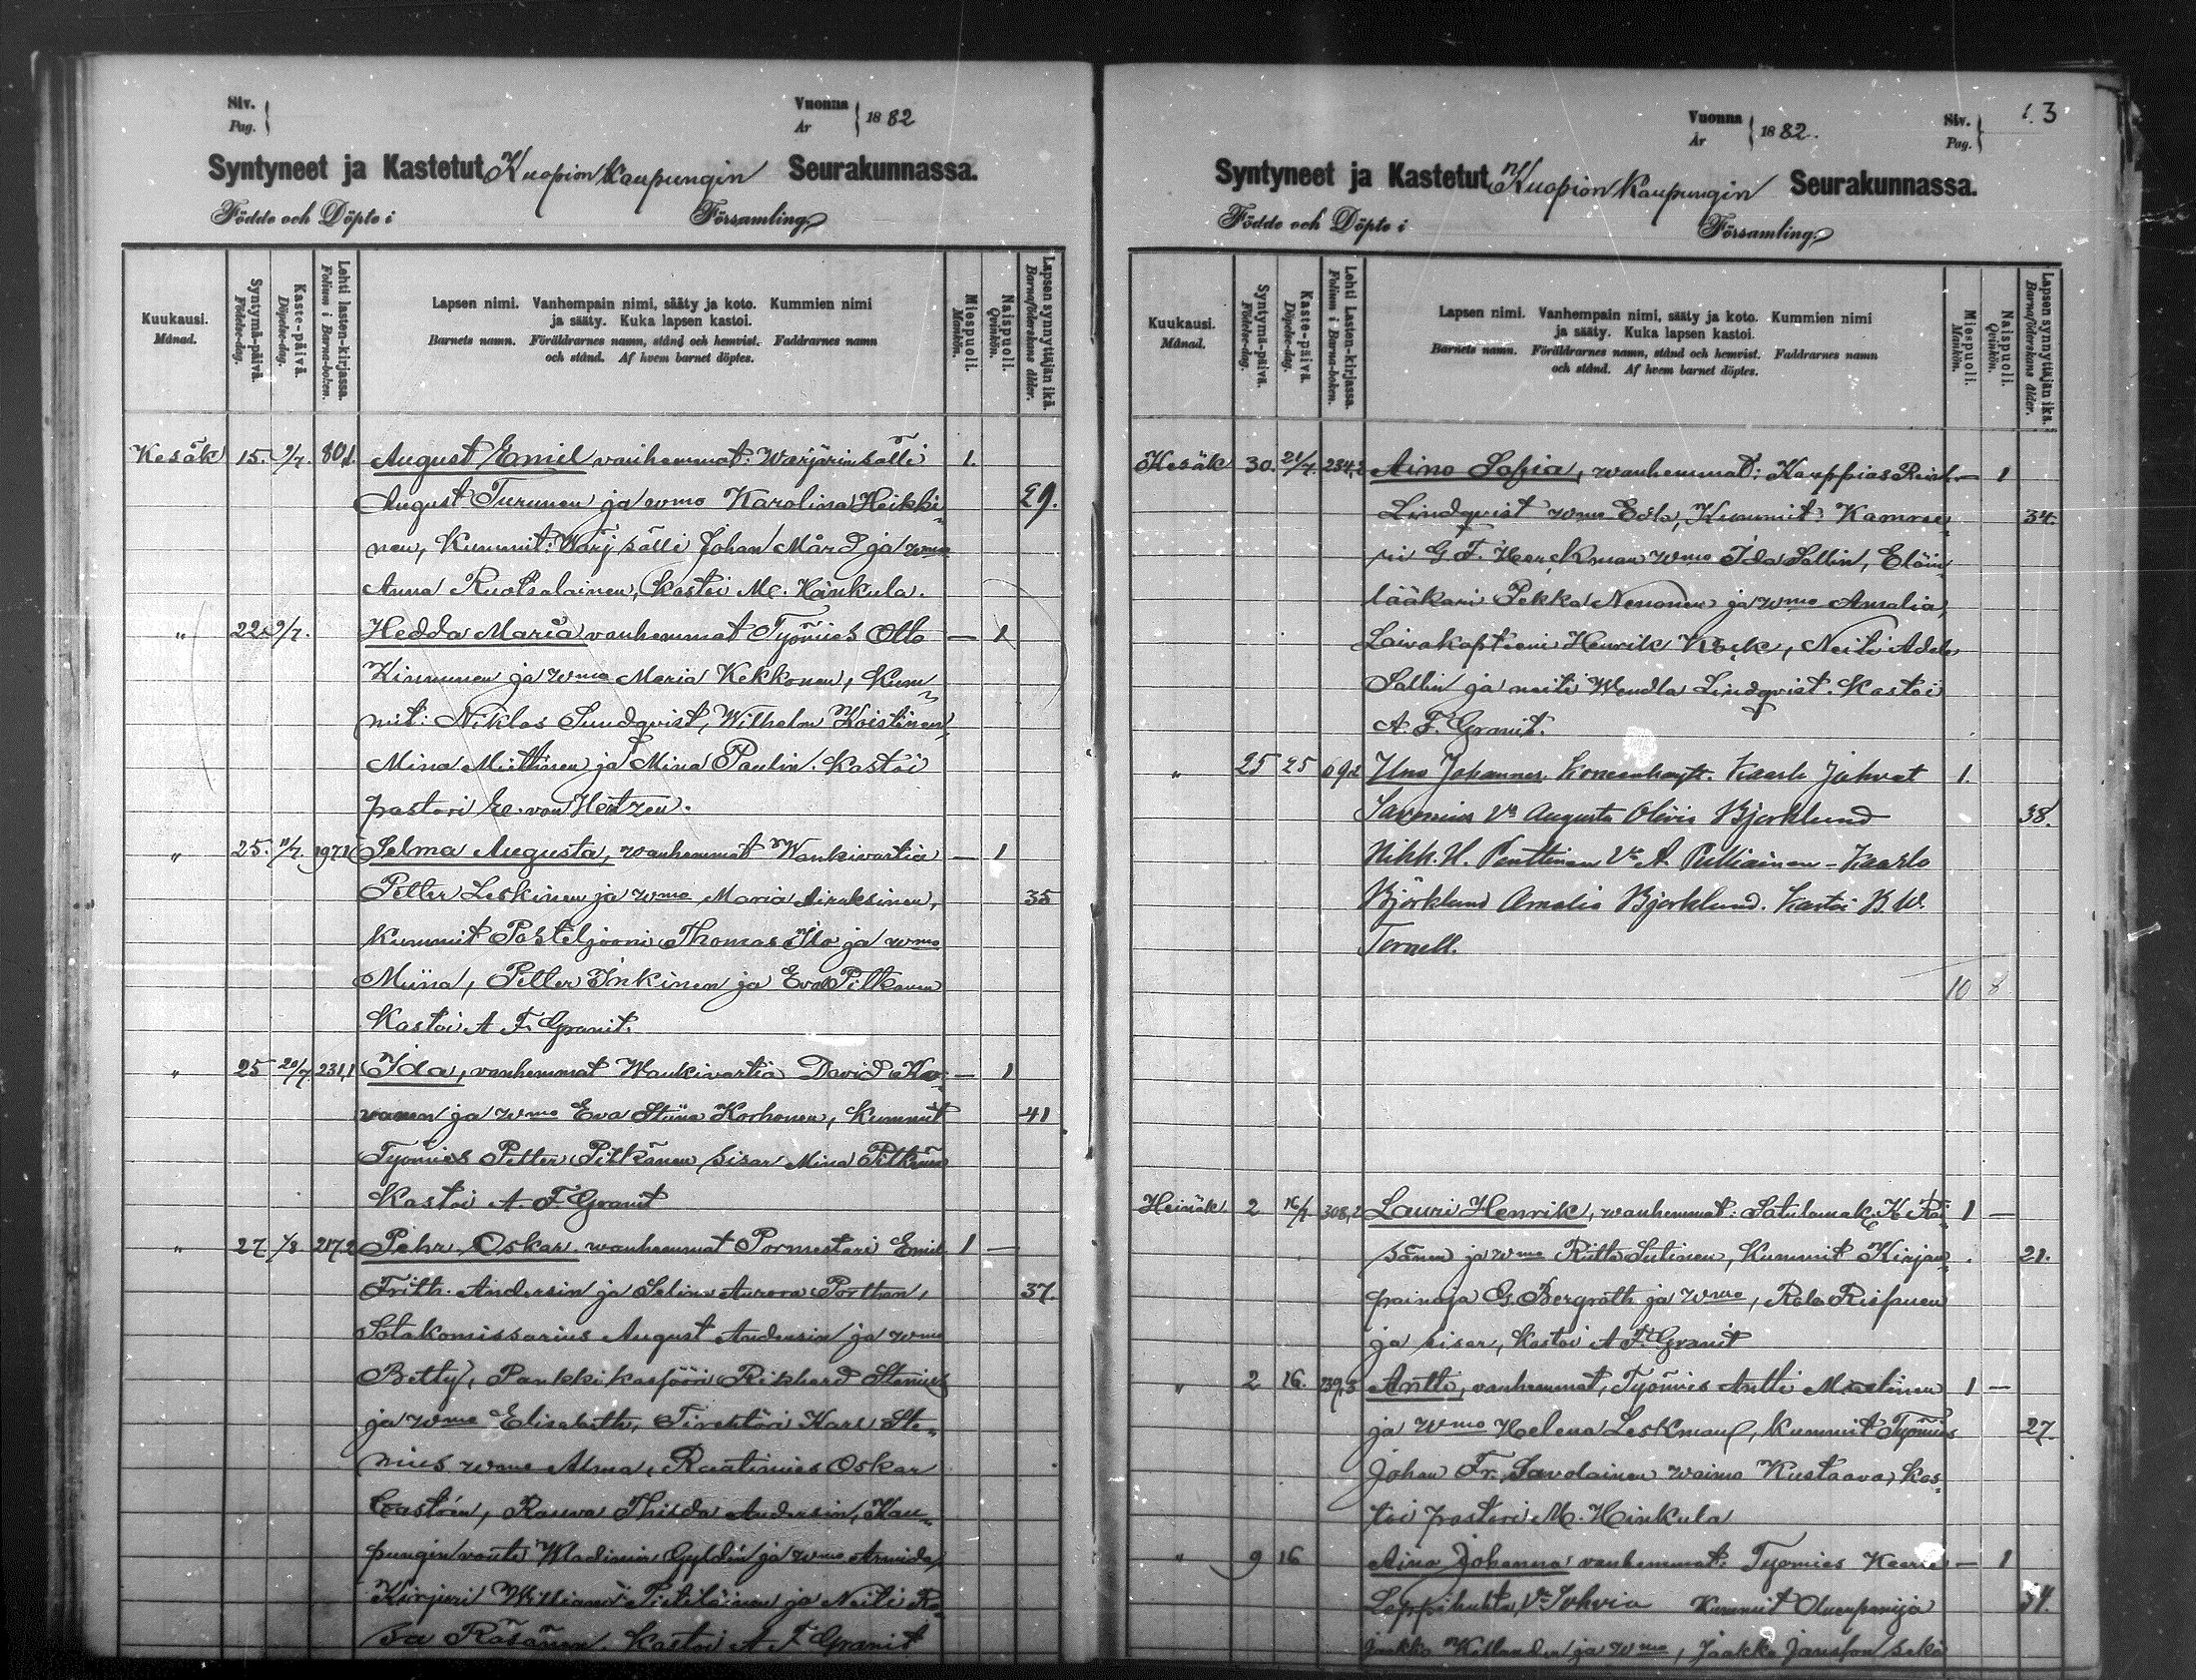 Siv.
Pag.
Vuonna
År
1882
Syntyneet ja Kastetut Kuopion Kaupungin Seurakunnassa.
Födde och Döpte i Församling
Kuukausi.
Månad.
Syntymä-päivä.
Födelse-dag.
Kaste-päivä.
Döpelse-dag.
Lehti lasten-kirjassa.
Folium i Barna-boken.
Lapsen nimi. Vanhempain nimi, sääty ja koto. Kummien nimi
ja sääty. Kuka lapsen kastoi.
Barnets namn. Föräldrarnes namn, stånd och hemvist. Faddrarnes namn
och stånd. Af hvem barnet döptes.
Miespuoli.
Mankön.
Naispuoli.
Qvinkön.
Lapsen synnyttäjän ikä.
Barnaföderskans ålder.
Kesäk 15. 9/7. 80,1. August Emil vanhemmat: Wärjärin sälli 1.
August Turunen ja wmo Karolina Heikki- 29.
nen, Kummit: Wärj sälli Johan Mård ja wmo
Anna Ruotsalainen, Kastoi M. Hinkula.
" 22. 9/7. Hedda Maria vanhemmat Työmies Otto — 1
Kinnunen ja wmo Maria Kekkonen, Kum-
mit: Niklas Sundqvist, Wilhelm Koistinen,
Mina Miettinen ja Mina Paulin. Kastoi
pastori E. von Hertzen.
" 25. 11/7. Selma Augusta, vanhemmat Wankivartia — 1
Petter Leskinen ja wmo Maria Airaksinen, 35
Kummit Posteljooni Thomas Ilo ja wmo
Miina, Petter Inkinen ja Eva Pitkänen
Kastoi A F. Granit.
" 25 20/7. 231,1 Ida, vanhemmat Wankivartia David Ko- — 1
vanen ja wmo Eva Stiina Korhonen, Kummit 41
Työmies Petter Pitkänen sisar Mina Pitkänen
Kastoi A. F Granit
" 27 1/8 217,2 Pehr Oskar, vanhemmat Pormestari Emil 1 —
Frith. Andersin ja Selina Aurora Porthan, 37.
Sotakomissarius August Andersin ja wmo
Betty, Pankkikasööri Rikhard Stenius
ja wmo Elisabeth, Tirehtöri Karl Ste-
nius wmo Alma, Raatimies Oskar
Castrén, Rouva Thilda Andersin, Kau-
pungin vouti Wladimir Gyldén ja wmo Armida,
Kirjuri William Pietiläinen ja Neiti Ro-
sa Räsänen. Kastoi A F Granit
Vuonna
År
1882.
Siv.
Pag.
13
Syntyneet ja Kastetut Kuopion Kaupungin Seurakunnassa.
Födde och Döpte i Församling
Kuukausi.
Månad.
Syntymä-päivä.
Födelse-dag.
Kaste-päivä.
Döpelse-dag.
Lehti Lasten-kirjassa.
Folium i Barna-boken.
Lapsen nimi. Vanhempain nimi, sääty ja koto. Kummien nimi
ja sääty. Kuka lapsen kastoi.
Barnets namn. Föräldrarnes namn, stånd och hemvist. Faddrarnes namn
och stånd. Af hvem barnet döptes.
Miespuoli.
Mankön.
Naispuoli.
Qvinkön.
Lapsen synnyttäjän ikä.
Barnaföderskans ålder.
Kesäk 30. 21/7. 234,2 Aino Sofia, wanhemmat: Kauppias — 1
Lindqvist wmo Edla, Kummit: Kamree- 34.
ri G. F. Herckman wmo Ida Sallin, Eläin-
lääkäri Pekka Nenonen ja wmo Amalia,
Laivakapteeni Henrik Käck, Neiti Adele
Sallin ja neiti Wendla Lindqvist. Kastoi
A. F. Granit.
" 25 25 Uno Johannes. Koneenkäytt. Kaarle Johvat 1.
Savonius Vo Augusta Olivia Bjorklund 38.
Nikk. H. Penttinen Vo A. Pulliainen – Kaarlo
Björklund Amalia Bjorklund. Kastoi K. W.
Tornell.
10 8
Heinäk 2 16/7 308,2 Lauri Henrik, vanhemmat: Satulamak. K Rä- 1 —
sänen ja wmo Riitta Sutinen, Kummit Kirjan- 21.
painaja G. Bergroth ja wmo,
ja sisar, Kastoi A F. Granit
" 2 16. Antti, vanhemmat, Työmies Antti 1 —
ja wmo Helena Leskman, Kummit Työmies 27.
Johan Fr. Savolainen waimo Kustaava, Kas-
toi pastori M. Hinkula
" 9 16 Aina Johanna vanhemmat: Tyomies — 1
Leppihuhta, Vo Sohvia Kummit Oluenpanija
Jaakko ja wmo, Jaakko Jansson sekä